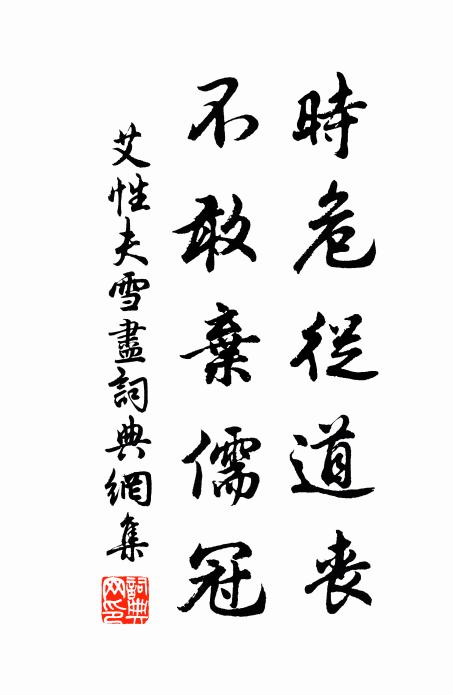 時危從道喪
不敢棄儒冠
艾性夫雪盡詞典網集
詞典網印